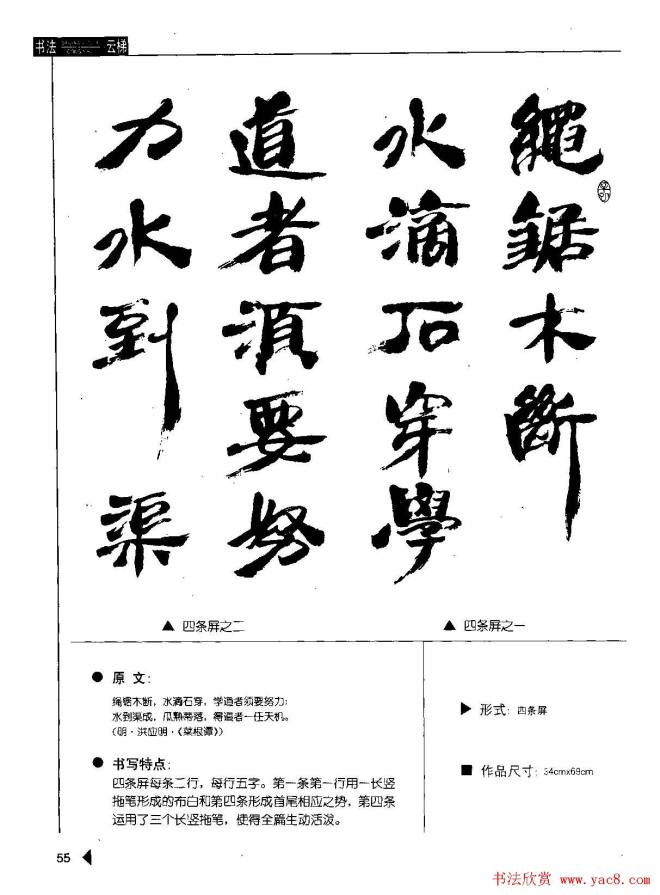 书法 云梯
繩鋸木斷
水滴石穿學
道者須要努
力水到渠
▲ 四条屏之二
▲ 四条屏之一
● 原文:
绳锯木断，水滴石穿，学道者须要努力;
水到渠成，瓜熟蒂落，得道者一任天机。
(明·洪应明·《菜根谭》)
● 书写特点:
四条屏每条二行，每行五字。第一条第一行用一长竖
拖笔形成的布白和第四条形成首尾相应之势，第四条
运用了三个长竖拖笔，使得全篇生动活泼。
▶ 形式: 四条屏
■ 作品尺寸: 34cmx69cm
55
书法欣赏 www.yac8.com